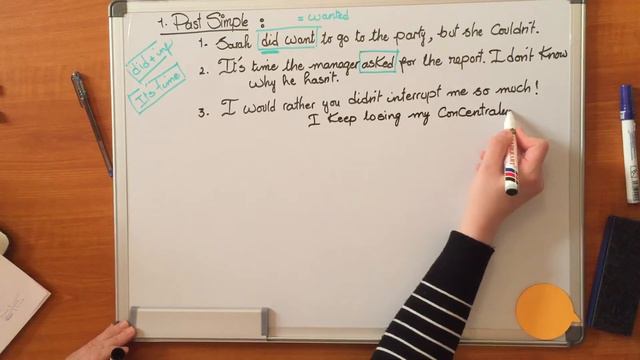 1. Past Simple :
= wanted
1. Sarah did want to go to the party, but she Couldn't.
did + inf
2. It's time the manager asked for the report. I don't know
why he hasn't.
It's Time
3. I would rather you didn't interrupt me so much!
I keep losing my Concentrat